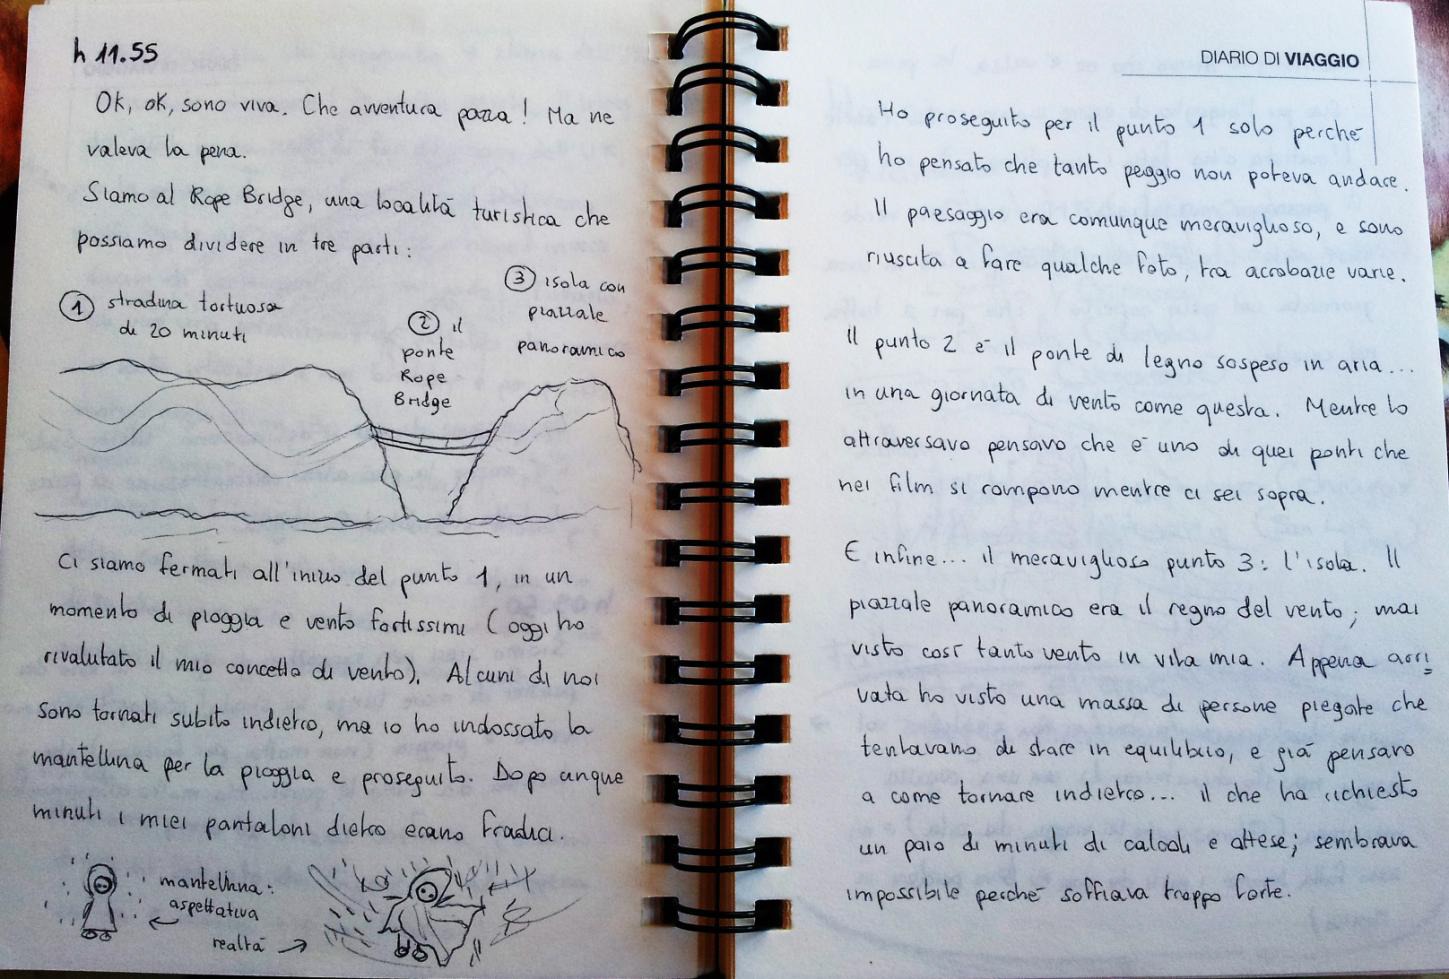 h 11.55
Ok, ok, sono viva. Che avventura pazza! Ma ne
valeva la pena.
Siamo al Rope Bridge, una località turistica che
possiamo dividere in tre parti:
1 stradina tortuosa
di 20 minuti
2 il
ponte
Rope
Bridge
3 isola con
piazzale
panoramico
Ci siamo fermati all'inizio del punto 1, in un
momento di pioggia e vento fortissimi (oggi ho
rivalutato il mio concetto di vento). Alcuni di noi
sono tornati subito indietro, ma io ho indossato la
mantellina per la pioggia e proseguito. Dopo cinque
minuti i miei pantaloni dietro erano fradici.
mantellina:
aspettativa
realtà
DIARIO DI VIAGGIO
Ho proseguito per il punto 1 solo perché
ho pensato che tanto peggio non poteva andare.
Il paesaggio era comunque meraviglioso, e sono
riuscita a fare qualche foto, tra acrobazie varie.
Il punto 2 è il ponte di legno sospeso in aria...
in una giornata di vento come questa. Mentre lo
attraversavo pensavo che è uno di quei ponti che
nei film si rompono mentre ci sei sopra.
E infine... il meraviglioso punto 3: l'isola. Il
piazzale panoramico era il regno del vento; mai
visto così tanto vento in vita mia. Appena arri=
vata ho visto una massa di persone piegate che
tentavano di stare in equilibrio, e già pensavo
a come tornare indietro... il che ha richiesto
un paio di minuti di calcoli e attese; sembrava
impossibile perché soffiava troppo forte.